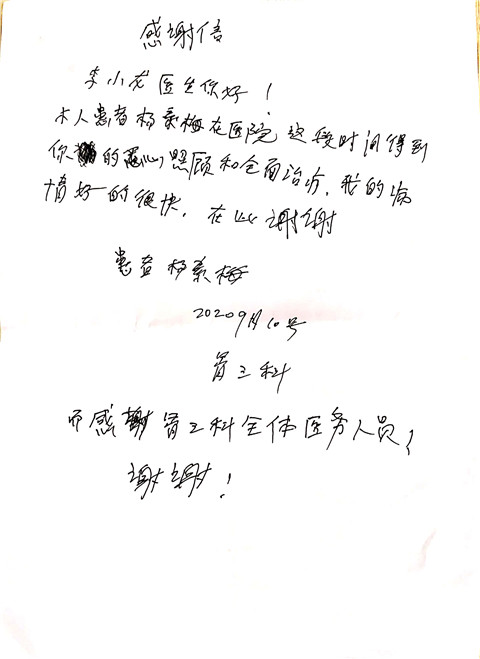 感谢信
李小龙医生你好！
本人患者杨素梅在医院这段时间得到
你的悉心照顾和全面治疗，我的病
情好的很快，在此谢谢
患者 杨素梅
2020 9月10号
骨三科
而感谢骨三科全体医务人员，
谢谢！